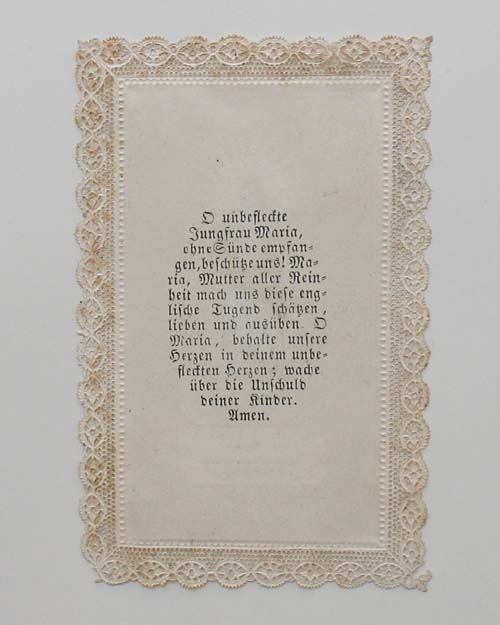 O unbefleckte
Jungfrau Maria,
ohne Sünde empfan-
gen, beschütze uns! Ma-
ria, Mutter aller Rein-
heit mach uns diese eng-
lische Tugend schätzen,
lieben und ausüben. O
Maria, behalte unsere
Herzen in deinem unbe-
fleckten Herzen; wache
über die Unschuld
deiner Kinder.
Amen.